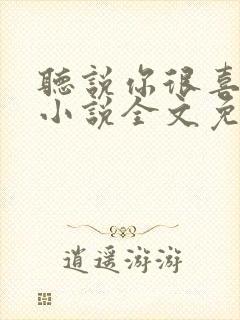 聽說你很喜
小說全文免
逍遥游游